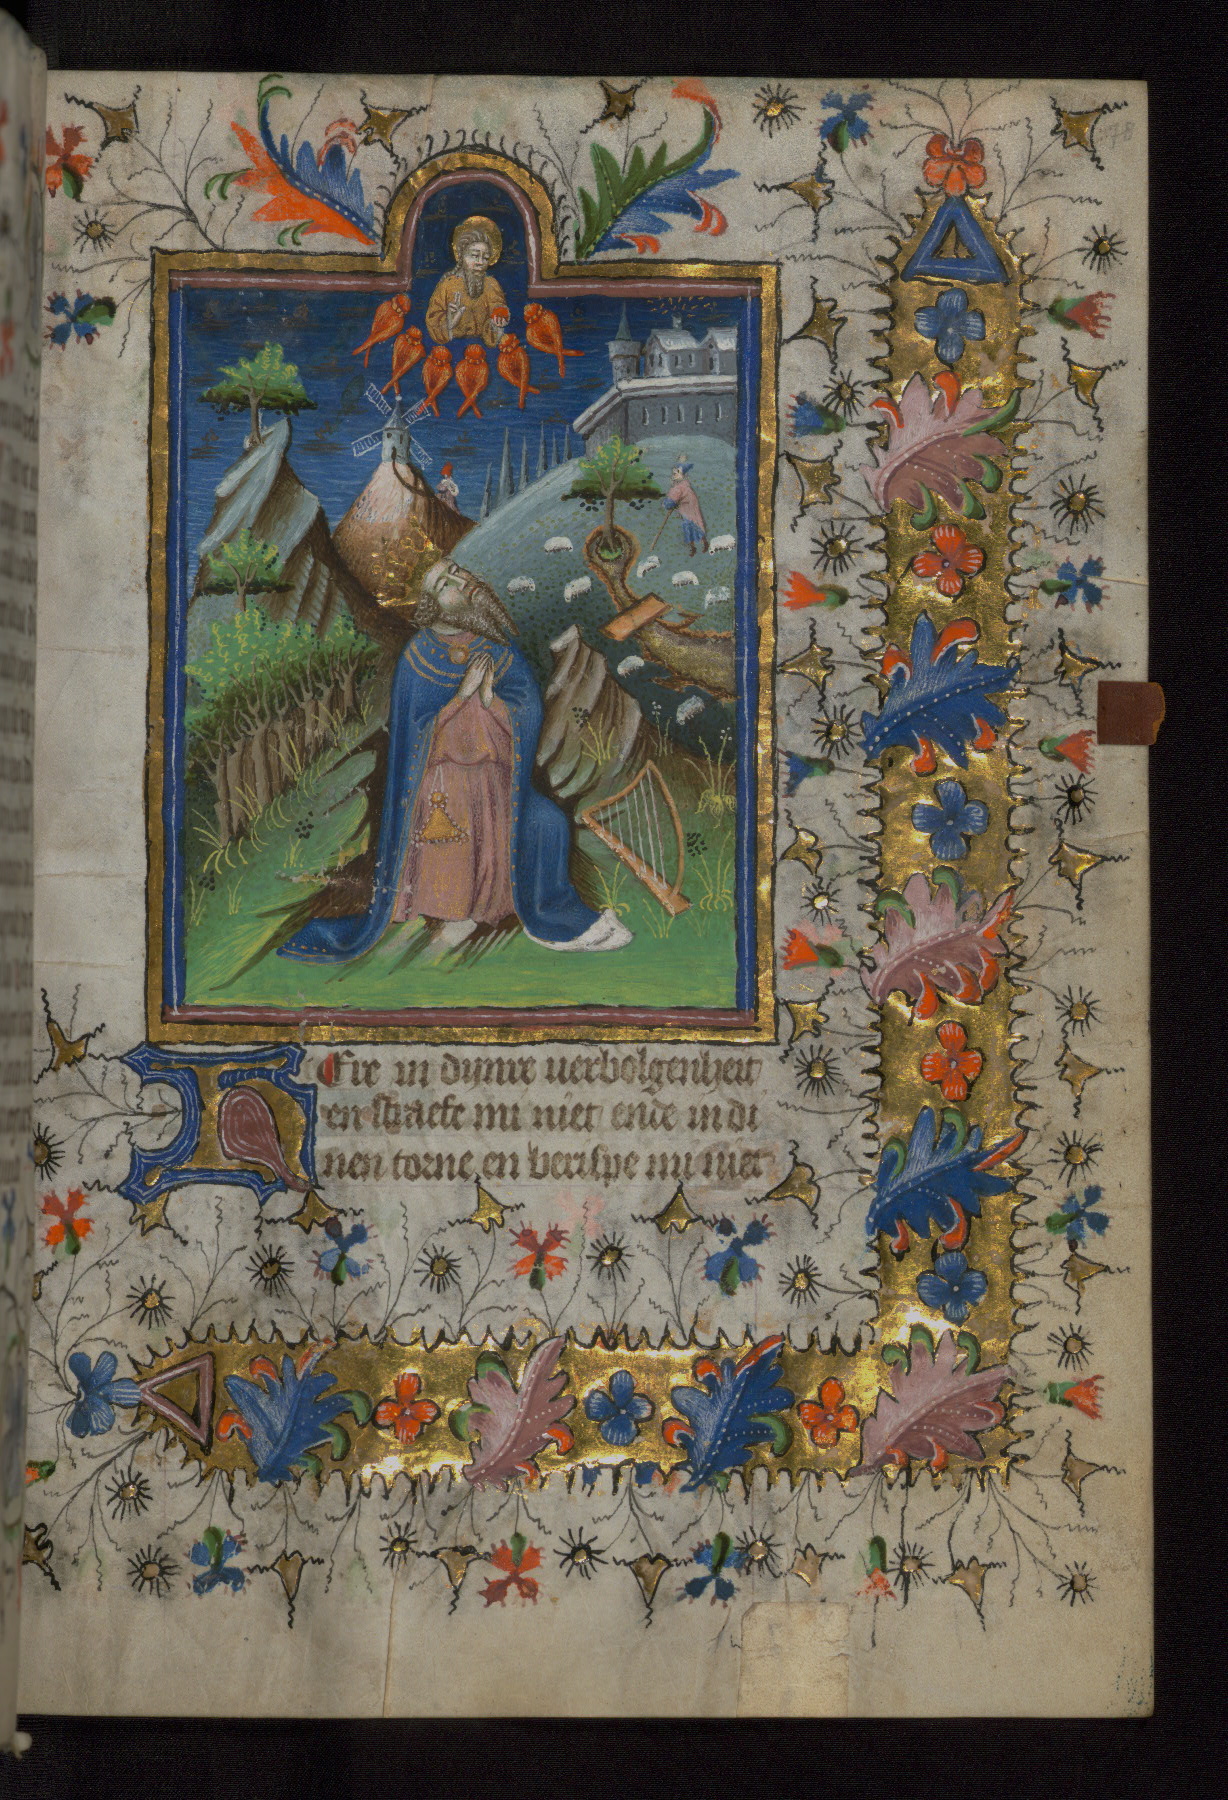 HEre in dijnre verbolgenheit
en straefe mi niet ende in di
nen torne en berispe mi niet
78